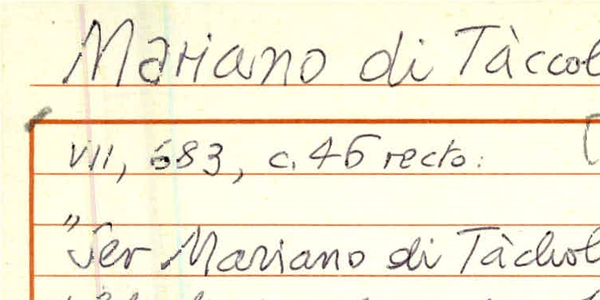 Mariano di Tàccol
VII, 683, c. 46 recto:
"Ser Mariano di Tàchol